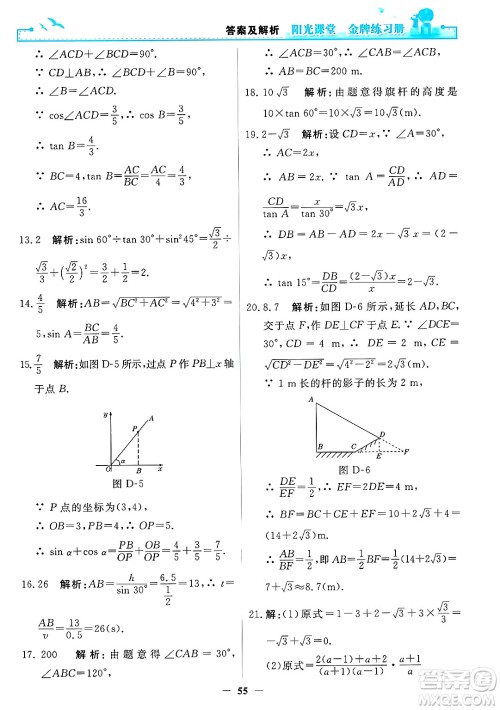 答案及解析 阳光课堂 金牌练习册
∴ ∠ACD+∠BCD=90°.
∴ ∠ACD=∠B.
∵ cos∠ACD=3/5,∴ cos B=3/5,
∴ tan B=4/3.
∵ BC=4,∴ tan B=AC/BC=AC/4=4/3,
∴ AC=16/3.
13.2 解析:sin 60°÷tan 30°+sin²45°=√3/2÷
√3/3+(√2/2)²=3/2+1/2=2.
14.4/5 解析:AB=√(BC²+AC²)=√(4²+3²)=
5,sin A=BC/AB=4/5.
15.7/5 解析:如图 D-5 所示,过点 P 作 PB⊥x 轴
于点 B.
y
A
P
O α B x
图 D-5
∵ P 点的坐标为(3,4),
∴ OB=3,PB=4,∴ OP=5.
∴ sin α+cos α=PB/OP+OB/OP=4/5+3/5=7/5.
16.26 解析:AB=h/sin 30°=6.5/(1/2)=13,∴ t=
AB/v=13/0.5=26(s).
17.200 解析:由题意得∠CAB=30°,
∠ABC=120°,
∴ ∠ACB=30°.∴ ∠ACB=∠CAB.
∴ AB=BC=200 m.
18.10√3 解析:由题意得旗杆的高度是
10×tan 60°=10×√3=10√3(m).
19.2-√3 解析:设 CD=x,∵ ∠A=30°,
∴ AC=2x,∵ tan A=CD/AD,∴ AD=
CD/tan A=x/tan 30°=x/(√3/3)=√3x,
∴ DB=AB-AD=2x-√3x=(2-√3)x,
∴ tan∠BCD=DB/CD=(2-√3)x/x=2-√3.
20.8.7 解析:如图 D-6 所示,延长 AD,BC,
交于点 F,作 DE⊥CF 于点 E.∵ ∠DCE=
30°,CD=4 m,∴ DE=2 m,CE=
√(CD²-DE²)=√(4²-2²)=2√3(m).
∵ 1 m 长的杆的影子的长为 2 m,
A
D
B C E F
图 D-6
∴ DE/EF=1/2,∴ EF=2DE=2×2=4(m).
∴ BF=BC+CE+EF=10+2√3+4=
(14+2√3)m.
∴ AB/BF=1/2,即AB/(14+2√3)=1/2,∴ AB=
7+√3≈8.7(m).
21.解:(1)原式=1-3+2-√3+3×√3/3
=-√3+√3
=0.
(2)原式=(2(a-1)+(a+2))/((a+1)(a-1))·(a+1)/a
55